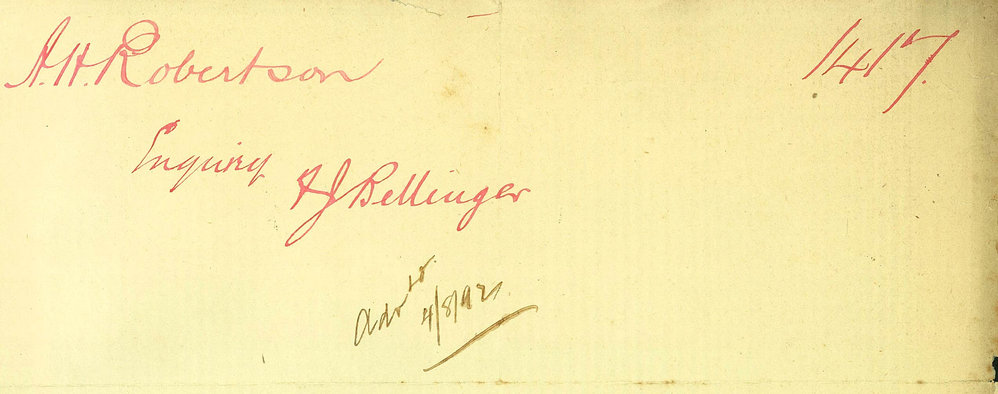 A.H. Robertson 1417.
Enquiry
A J Bellinger
Adv to.
4/8/92.